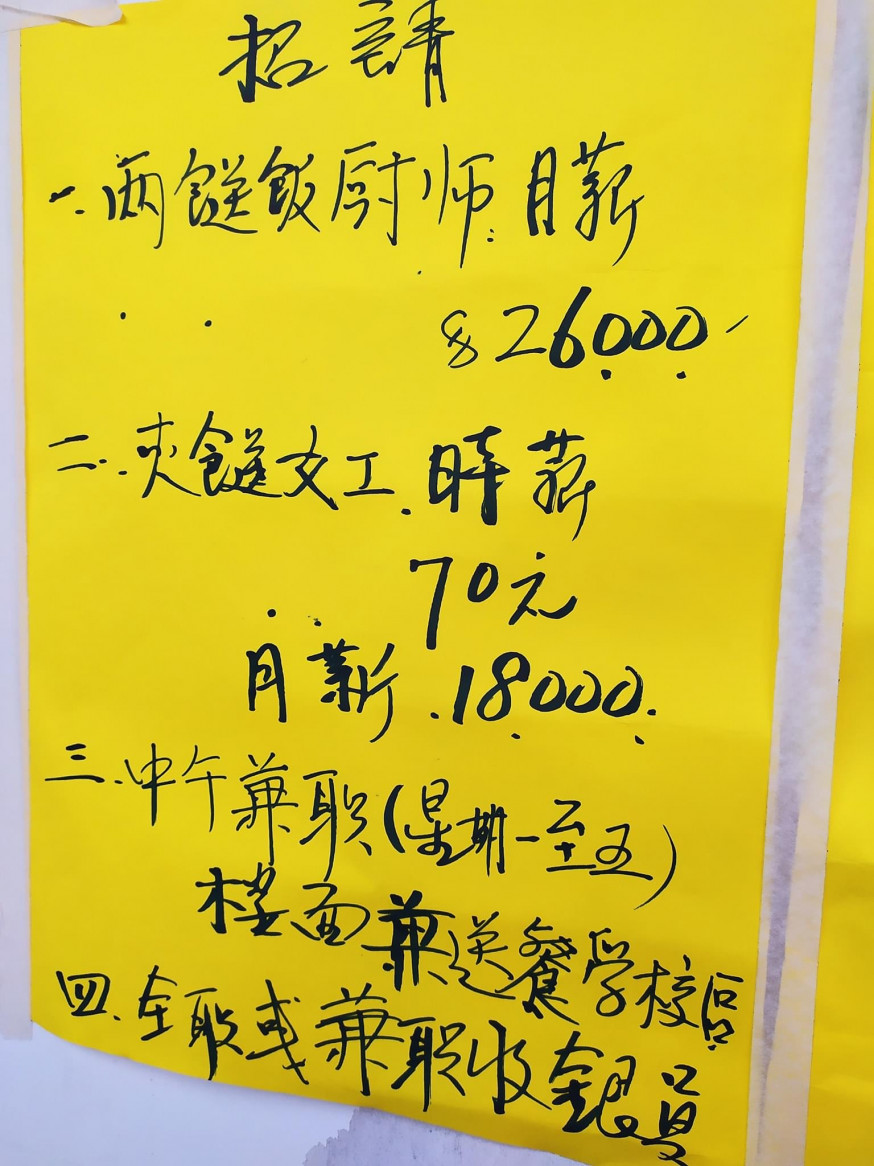 招請
一.両餸飯厨师.月薪
$26000
二.夾餸女工.時薪
70元
月薪.18000.
三.中午兼职(星期一至五)
楼面兼送餐学校区
四.全职或兼职收銀員